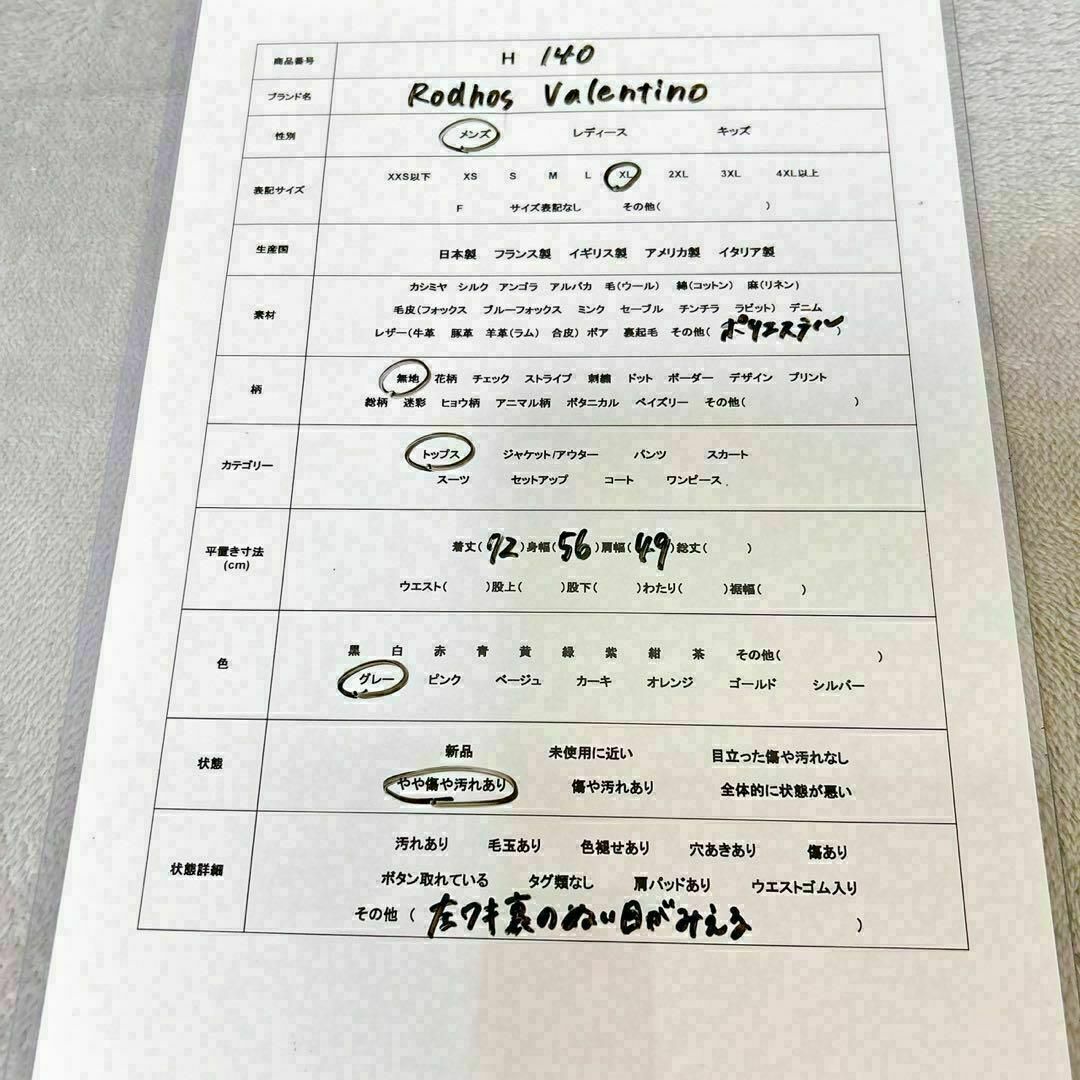 商品番号 H 140
ブランド名 Rodhos Valentino
性別 メンズ レディース キッズ
表記サイズ XXS以下 XS S M L XL 2XL 3XL 4XL以上
F サイズ表記なし その他( )
生産国 日本製 フランス製 イギリス製 アメリカ製 イタリア製
素材 カシミヤ シルク アンゴラ アルパカ 毛(ウール) 綿(コットン) 麻(リネン)
毛皮(フォックス ブルーフォックス ミンク セーブル チンチラ ラビット) デニム
レザー(牛革 豚革 羊革(ラム) 合皮) ボア 裏起毛 その他( ポリエステル )
柄 無地 花柄 チェック ストライプ 刺繍 ドット ボーダー デザイン プリント
総柄 迷彩 ヒョウ柄 アニマル柄 ボタニカル ペイズリー その他( )
カテゴリー トップス ジャケット/アウター パンツ スカート
スーツ セットアップ コート ワンピース
平置き寸法 (cm) 着丈(72)身幅(56)肩幅(49)総丈( )
ウエスト( )股上( )股下( )わたり( )裾幅( )
色 黒 白 赤 青 黄 緑 紫 紺 茶 その他( )
グレー ピンク ベージュ カーキ オレンジ ゴールド シルバー
状態 新品 未使用に近い 目立った傷や汚れなし
やや傷や汚れあり 傷や汚れあり 全体的に状態が悪い
状態詳細 汚れあり 毛玉あり 色褪せあり 穴あきあり 傷あり
ボタン取れている タグ類なし 肩パッドあり ウエストゴム入り
その他 ( 左ワキ裏のぬい目がみえる )